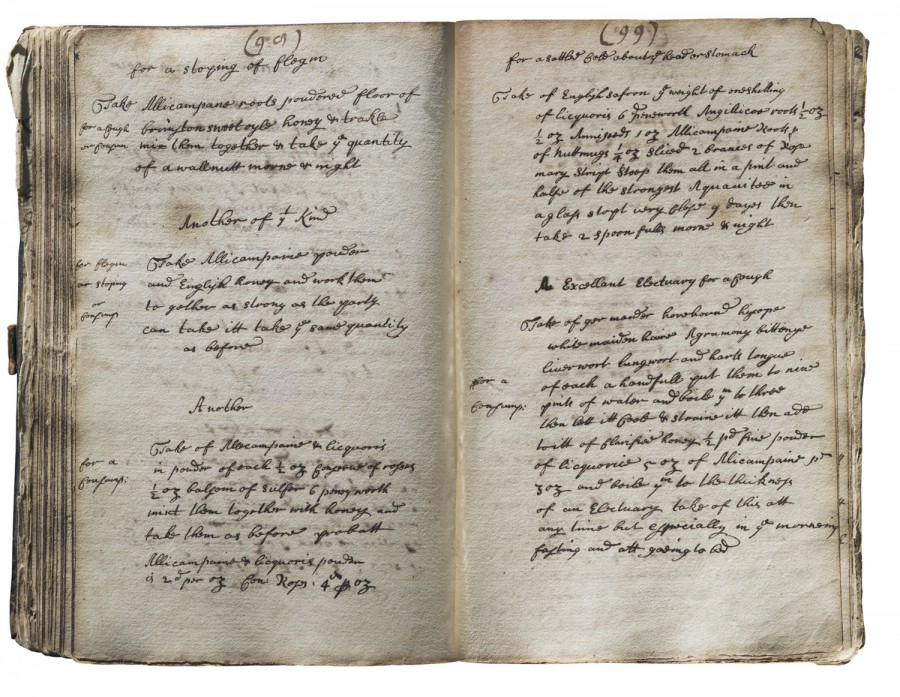 (99)
for a stoping of flegm
Take Allicampane roots poudered floor of
for a Cough
or Consum
brimston sweet oyle honey & trakle
mix them together & take yᵉ quantity
of a wallnutt morne & night
Another of yᵗ Kind
for flegm
or stoping
or
Consump:
Take Allicampaine pouder
and English honey and work them
to gether as strong as the party
can take itt take yᵉ same quantity
as before
Another
for a
Consump:
Take of Allicampaine & licquoris
in pouder of each ½ oz Conserve of roses
½ oz balsom of sulfer 6 peny worth
mixt them together with honey and
take them as before probatt
Allicampaine & licquoris pouder
is 2ᵈ per oz Con: Roses: 4ᵈ oz
(99)
for a sattled Cold about yᵉ head or stomack
Take of English safron yᵉ weight of one shilling
of licquoris 6 peneworth Angilicoe roots ½ oz
½ oz Anniseeds 1 oz Allicampaine roots
of nuttmugs ¼ oz sliced 2 brances of Rose
mary stript steep them all in a pint and
halfe of the strongest Aquavitae in
a glass stopt very Close 9 dayes then
take 2 spoon fulls morne & night
An Excellant Electuary for a Cough
for a
Consump:
Take of germander horehound hysope
white maiden haire Agramony bittonye
liverwort lungwort and harts tongue
of each a handfull put them to nine
pints of water and boile yᵐ to three
then lett itt Coole & straine itt then add
to itt of Clarifie honey ½ pd fine pouder
of licquorice 5 oz of Allicampaine
3 oz and boile yᵐ to the thickness
of an Electuary take of this att
any time but especially in yᵉ morneing
fasting and att goeing to bed